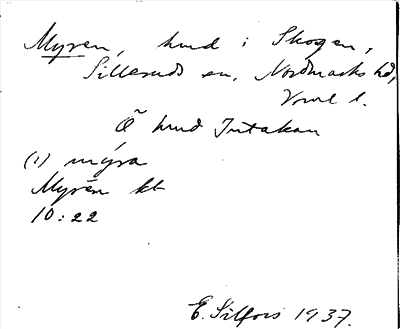 Myren, hmd i Skogen,
Silleruds sn, Nordmarks hd,
Vrml l.
Å hmd Intakan
(i) my̍ra
Myrën kt
10:22
E. Silfors 1937.